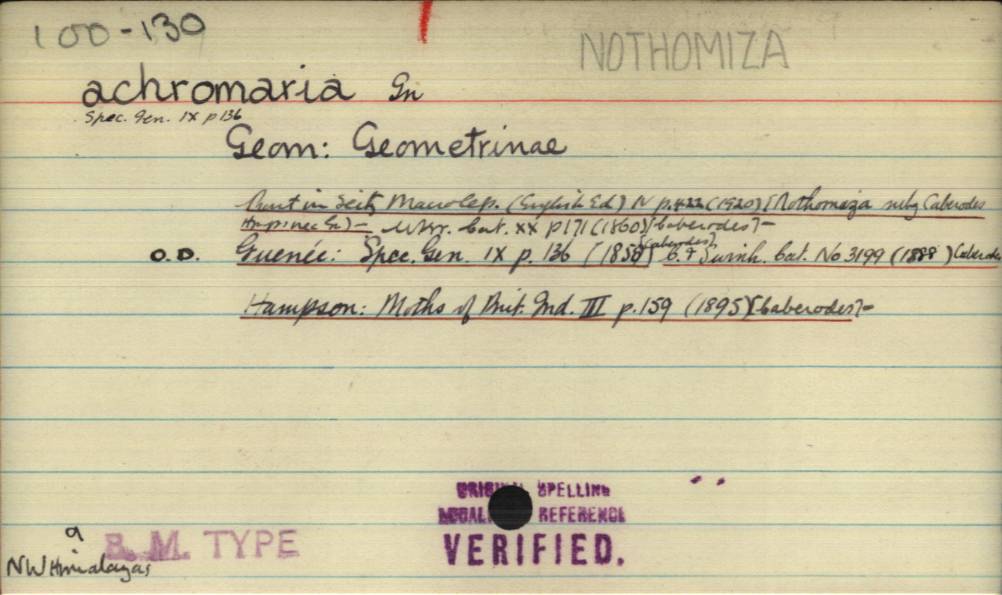 100-130
NOTHOMIZA
achromaria Gn
Spec. Gen. IX p 136
Geom: Geometrinae
Prout in Seitz Macrolep. (English Ed) IV p. 422 (1920) [Nothomiza nily Caberodes
Hmps nec Gn) — Wkr. Cat. XX p171 (1860) [Caberodes] —
O.D. Guenée: Spec. Gen. IX p. 136 [1858] [Caberodes] C. & Swinh. Cat. No 3199 (1888) [Caberodes
Hampson: Moths of Brit. Ind. III p. 159 (1895) [Caberodes] —
ORIGINAL SPELLING
LOCALITY REFERENCE
VERIFIED.
B. M. TYPE
NW Himalayas